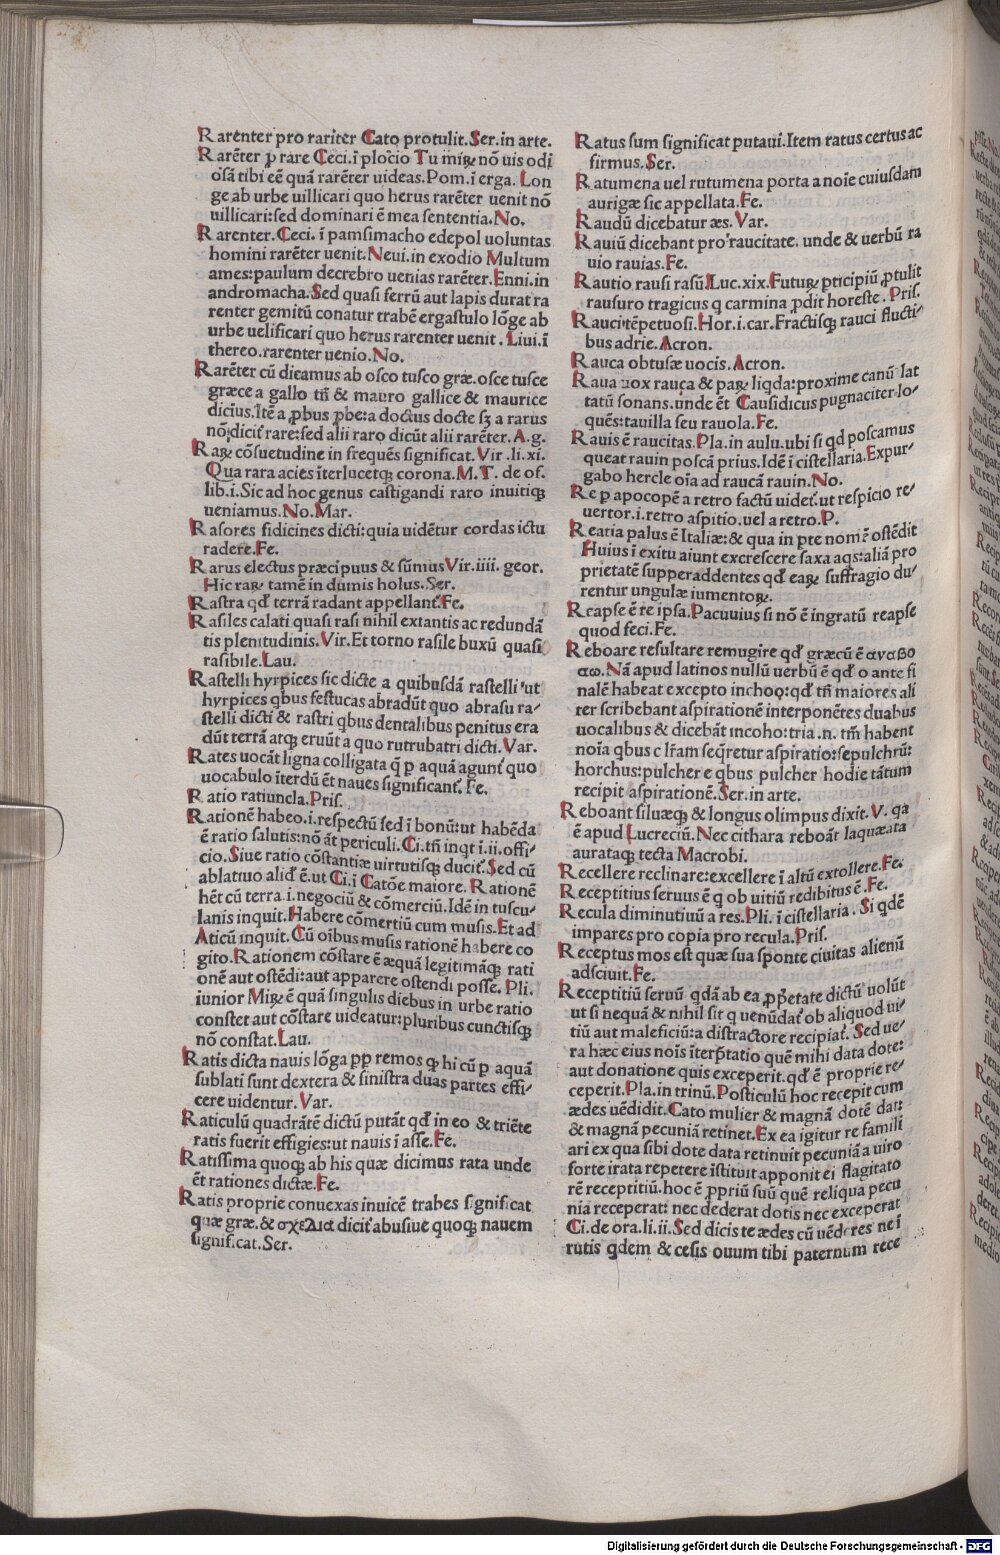 Rarenter pro rariter Cato protulit. Ser. in arte.
Rarēter ꝓ rare Ceci. ī plocio Tu miꝶ nō uis odi
osā tibi eē quā rarēter uideas. Pom. ī erga. Lon
ge ab urbe uillicari quo herus rarēter uenit nō
uillicari: sed dominari ē mea sententia. No.
Rarenter. Ceci. ī pamsimacho edepol uoluntas
homini rarēter uenit. Neui. in exodio Multum
ames: paulum decrebro uenias rarēter. Enni. in
andromacha. Sed quasi ferrū aut lapis durat ra
renter gemitū conatur trabē ergastulo lōge ab
urbe uelificari quo herus rarenter uenit. Liui. ī
thereo. rarenter uenio. No.
Rarēter cū dicamus ab osco tusco græ. osce tusce
græce a gallo tn̄ & mauro gallice & maurice
dicius. Itē a ꝓbus ꝓbe: a doctus docte sꝫ a rarus
nō; dicit̄ rare: sed alii raro dicūt alii rarēter. A. g.
Raꝶ cōsuetudine in frequēs significat. Vir. li. xi.
Qua rara acies īterlucetqꝫ corona. M. T. de of.
lib. i. Sic ad hoc genus castigandi raro inuitiqꝫ
ueniamus. No. Mar.
Rasores fidicines dicti: quia uidētur cordas ictu
radere. Fe.
Rarus electus præcipuus & sūmus Vir. iiii. geor.
Hic raꝶ tamē in dumis holus. Ser.
Rastra qđ terrā radant appellant̄. Fe.
Rasiles calati quasi rasi nihil extantis ac redundā
tis plenitudinis. Vir. Et torno rasile buxū quasi
rasibile. Lau.
Rastelli hyrpices sic dicte a quibusdā rastelli ut
hyrpices qbus festucas abradūt quo abrasu ra⸗
stelli dicti & rastri qbus dentalibus penitus era
dūt terrā atqꝫ eruūt a quo rutrubatri dicti. Var.
Rates uocāt ligna colligata q̄ p aquā agunt̄ quo
uocabulo īterdū ēt naues significant̄. Fe.
Ratio ratiuncla. Pris.
Rationē habeo. i. respectū sed ī bonū: ut habēda
ē ratio salutis: nō āt periculi. Ci. tn̄ inqt i. ii. offi⸗
cio. Siue ratio cōstantiæ uirtutisqꝫ ducit̄. Sed cū
ablatiuo aliđ ē. ut Ci. ī Catōe maiore. Rationē
hēt cū terra. i. negociū & cōmerciū. Idē in tuscu⸗
lanis inquit. Habere cōmertiū cum musis. Et ad
Aticū inquit. Cū oibus musis rationē habere co
gito. Rationem cōstare ē æquā legitimāqꝫ rati
onē aut ostēdi: aut apparere ostendi posse. Pli.
iunior Miꝶ ē quā singulis diebus in urbe ratio
constet aut cōstare uideatur: pluribus cunctisqꝫ
nō constat. Lau.
Ratis dicta nauis lōga ꝓp remos qꝫ hi cū p aquā
sublati sunt dextera & sinistra duas partes effi⸗
cere uidentur. Var.
Raticulū quadrātē dictū putāt qđ in eo & triēte
ratis fuerit effigies: ut nauis ī asse. Fe.
Ratissima quoqꝫ ab his quæ dicimus rata unde
ēt rationes dictæ. Fe.
Ratis proprie conuexas inuicē trabes significat
quæ græ. & σχελια dicit̄ abusiue quoqꝫ nauem
significat. Ser.
Ratus sum significat putaui. Item ratus certus ac
firmus. Ser.
Ratumena uel rutumena porta a noīe cuiusdam
aurigæ sic appellata. Fe.
Raudū dicebatur æs. Var.
Rauiū dicebant pro raucitate. unde & uerbū ra
uio rauias. Fe.
Rautio rausi rasū. Luc. xix. Futuꝶ pticipiū ꝓtulit
rausuro tragicus q carmina ꝓdit horeste. Pris.
Rauci tēpetuosi. Hor. i. car. Fractisqꝫ rauci flucti⸗
bus adrie. Acron.
Rauca obtusæ uocis. Acron.
Raua uox rauca & paꝶ liqda: proxime canū lat
tatū sonans. unde ēt Causidicus pugnaciter lo⸗
quēs: tauilla seu rauola. Fe.
Rauis ē raucitas. Pla. in aulu. ubi si qd poscamus
queat rauin poscā prius. Idē ī cistellaria. Expur⸗
gabo hercle oīa ad raucā rauin. No.
Re p apocopē a retro factū uidet̄. ut respicio re⸗
uertor. i. retro aspitio. uel a retro. P.
Rearia palus ē Italiæ: & qua in pte nomē ostēdit
Huius ī exitu aiunt excrescere saxa aqs: aliā pro
prietatē supperaddentes qđ eaꝶ suffragio du⸗
rentur ungulæ iumentoꝶ.
Reapse ē re ipsa. Pacuuius si nō ē ingratū reapse
quod feci. Fe.
Reboare resultare remugire qđ græcū ē αναβο
αω. Nā apud latinos nullū uerbū ē qđ o ante fi
nalē habeat excepto inchoo: qđ tn̄ maiores ali
ter scribebant aspirationē interponētes duabus
uocalibus & dicebāt incoho: tria. n. tm̄ habent
noīa qbus c lr̄am seq̄retur aspiratio: sepulchrū:
horchus: pulcher e qbus pulcher hodie tātum
recipit aspirationē. Ser. in arte.
Reboant siluæqꝫ & longus olimpus dixit. V. qa
ē apud Lucreciū. Nec cithara reboāt laquæata
aurataqꝫ tecta Macrobi.
Recellere reclinare: excellere ī altū extollere. Fe.
Receptitius seruus ē q ob uitiū redibitus ē. Fe.
Recula diminutiuū a res. Pli. ī cistellaria. Si qdē
impares pro copia pro recula. Pris.
Receptus mos est quæ sua sponte ciuitas alienū
adsciuit. Fe.
Receptitiū seruū qdā ab ea ꝓpetate dictū uolūt
ut si nequā & nihil sit q uenūdat̄ ob aliquod ui⸗
tiū aut maleficiū: a distractore recipiat̄. Sed ue⸗
ra hæc eius noīs īterp̄tatio quē mihi data dote:
aut donatione quis exceperit. qđ ē proprie re⸗
ceperit. Pla. in trinū. Posticulū hoc recepit cum
ædes uēdidit. Cato mulier & magnā dotē dat:
& magnā pecuniā retinet. Ex ea igitur re famili
ari ex qua sibi dote data retinuit pecuniā a uiro
forte irata repetere īstituit apponit ei flagitato
rē receptitiū. hoc ē ꝓpriū suū quē reliqua pecu
nia receperat: nec dederat dotis nec exceperat
Ci. de ora. li. ii. Sed dicis te ædes cū uēderes ne ī
rutis qdem & cesis ouum tibi paternum rece
Digitalisierung gefördert durch die Deutsche Forschungsgemeinschaft - DFG